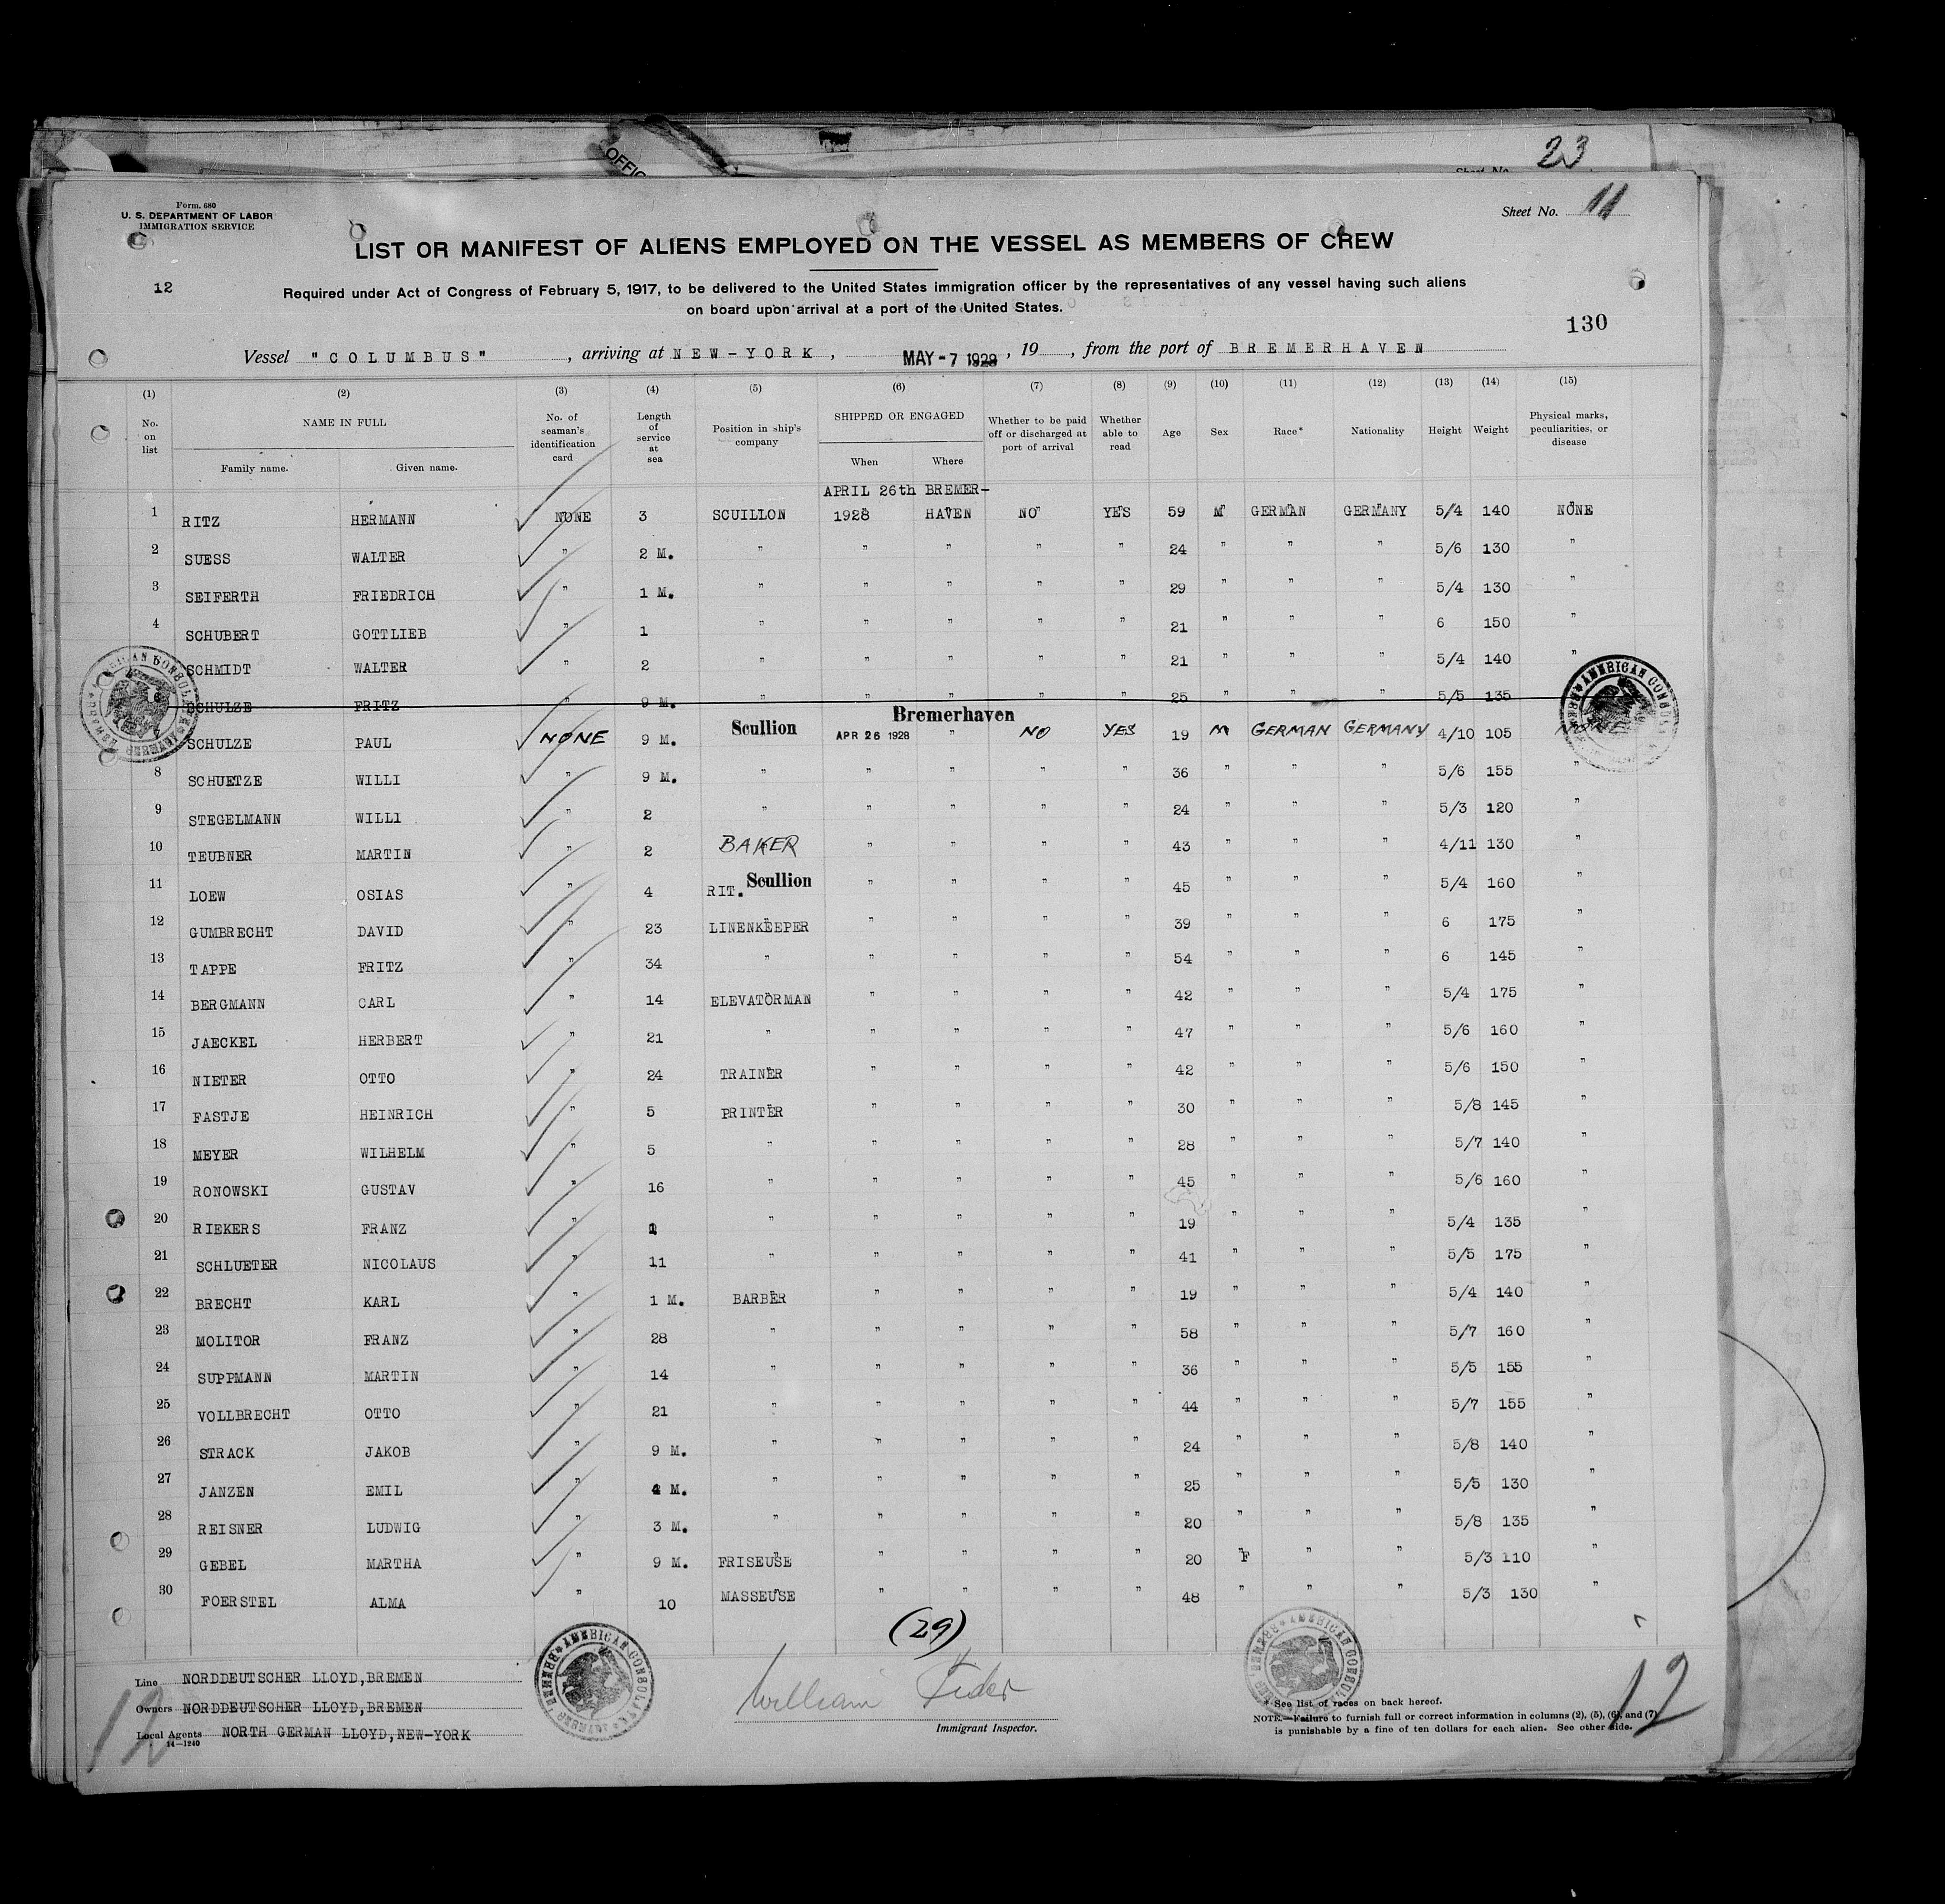 23
OFFIC
Sheet No.
Form. 680
U. S. DEPARTMENT OF LABOR
IMMIGRATION SERVICE
Sheet No. 11
LIST OR MANIFEST OF ALIENS EMPLOYED ON THE VESSEL AS MEMBERS OF CREW
12
Required under Act of Congress of February 5, 1917, to be delivered to the United States immigration officer by the representatives of any vessel having such aliens
on board upon arrival at a port of the United States.
130
Vessel "COLUMBUS", arriving at NEW-YORK, MAY - 7 1928, 19, from the port of BREMERHAVEN
(1) (2) (3) (4) (5) (6) (7) (8) (9) (10) (11) (12) (13) (14) (15)
No. on list NAME IN FULL Family name. Given name. No. of seaman's identification card Length of service at sea Position in ship's company SHIPPED OR ENGAGED When Where Whether to be paid off or discharged at port of arrival Whether able to read Age Sex Race* Nationality Height Weight Physical marks, peculiarities, or disease
APRIL 26th BREMER-
1 RITZ HERMANN NONE 3 SCUILLON 1928 HAVEN NO YES 59 M GERMAN GERMANY 5/4 140 NONE
2 SUESS WALTER " 2 M. " " " " " 24 " " " 5/6 130 "
3 SEIFERTH FRIEDRICH " 1 M. " " " " " 29 " " " 5/4 130 "
4 SCHUBERT GOTTLIEB " 1 " " " " " 21 " " " 6 150 "
5 SCHMIDT WALTER " 2 " " " " " 21 " " " 5/4 140 "
SCHULZE FRITZ " 9 M. " " " " " 25 " " " 5/5 135
SCHULZE PAUL NONE 9 M. Scullion APR 26 1928 Bremerhaven " NO YES 19 M GERMAN GERMANY 4/10 105
8 SCHUETZE WILLI " 9 M. " " " " " 36 " " " 5/6 155 "
9 STEGELMANN WILLI " 2 " " " " " 24 " " " 5/3 120 "
10 TEUBNER MARTIN " 2 BAKER " " " " 43 " " " 4/11 130 "
11 LOEW OSIAS " 4 RIT. Scullion " " " " 45 " " " 5/4 160 "
12 GUMBRECHT DAVID " 23 LINENKEEPER " " " " 39 " " " 6 175 "
13 TAPPE FRITZ " 34 " " " " " 54 " " " 6 145 "
14 BERGMANN CARL " 14 ELEVATORMAN " " " " 42 " " " 5/4 175 "
15 JAECKEL HERBERT " 21 " " " " " 47 " " " 5/6 160 "
16 NIETER OTTO " 24 TRAINER " " " " 42 " " " 5/6 150 "
17 FASTJE HEINRICH " 5 PRINTER " " " " 30 " " " 5/8 145 "
18 MEYER WILHELM " 5 " " " " " 28 " " " 5/7 140 "
19 RONOWSKI GUSTAV " 16 " " " " " 45 " " " 5/6 160 "
20 RIEKERS FRANZ " 1 " " " " " 19 " " " 5/4 135 "
21 SCHLUETER NICOLAUS " 11 " " " " " 41 " " " 5/5 175 "
22 BRECHT KARL " 1 M. BARBER " " " " 19 " " " 5/4 140 "
23 MOLITOR FRANZ " 28 " " " " " 58 " " " 5/7 160 "
24 SUPPMANN MARTIN " 14 " " " " " 36 " " " 5/5 155 "
25 VOLLBRECHT OTTO " 21 " " " " " 44 " " " 5/7 155 "
26 STRACK JAKOB " 9 M. " " " " " 24 " " " 5/8 140 "
27 JANZEN EMIL " 4 M. " " " " " 25 " " " 5/5 130 "
28 REISNER LUDWIG " 3 M. " " " " " 20 " " " 5/8 135 "
29 GEBEL MARTHA " 9 M. FRISEUSE " " " " 20 F " " 5/3 110 "
30 FOERSTEL ALMA " 10 MASSEUSE " " " " 48 " " " 5/3 130 "
(29)
Line NORDDEUTSCHER LLOYD, BREMEN
Owners NORDDEUTSCHER LLOYD, BREMEN
Local Agents NORTH GERMAN LLOYD, NEW-YORK
14-1240
12
AMERICAN CONSULATE
William Fider
Immigrant Inspector.
* See list of races on back hereof.
NOTE.—Failure to furnish full or correct information in columns (2), (5), (6), and (7)
is punishable by a fine of ten dollars for each alien. See other side.
12